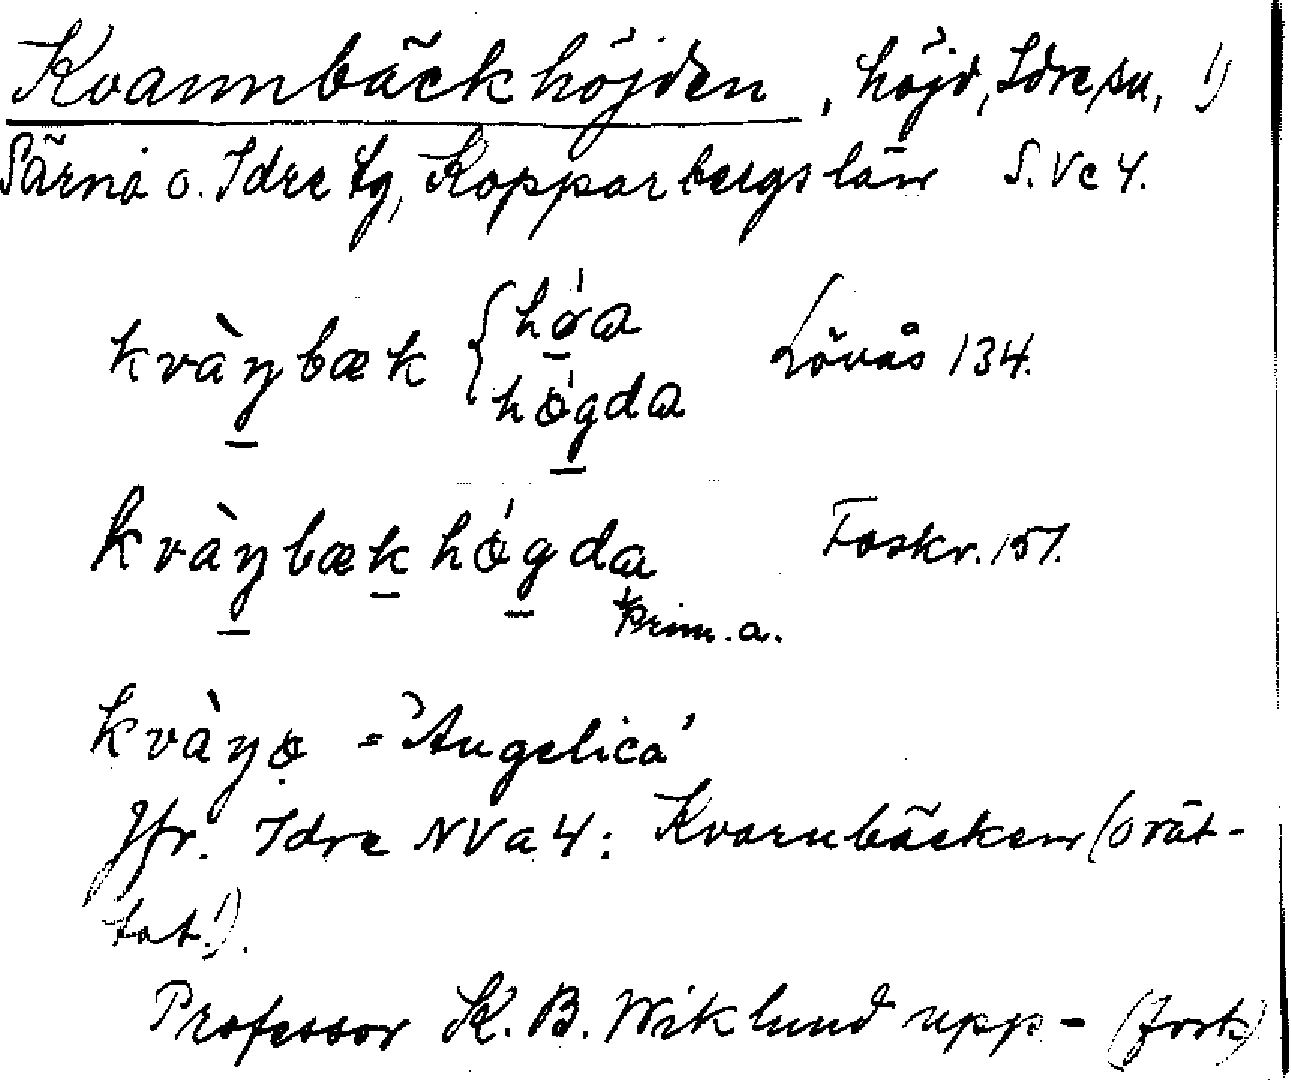 Kvannbäckhöjden, höjd, Idre sn, 1)
Särna o. Idre tg, Kopparbergs län S.Vc 4.
kvàŋbæk { hǿa Lövås 134.
hǿgda
kvàŋbæk hǿgda Foskr. 151.
Prim. a.
kvàŋø = 'Angelica'
Jfr. Idre NVa4: Kvarnbäcken (orät-
tat!).
Professor K. B. Wiklund upp- (forts)